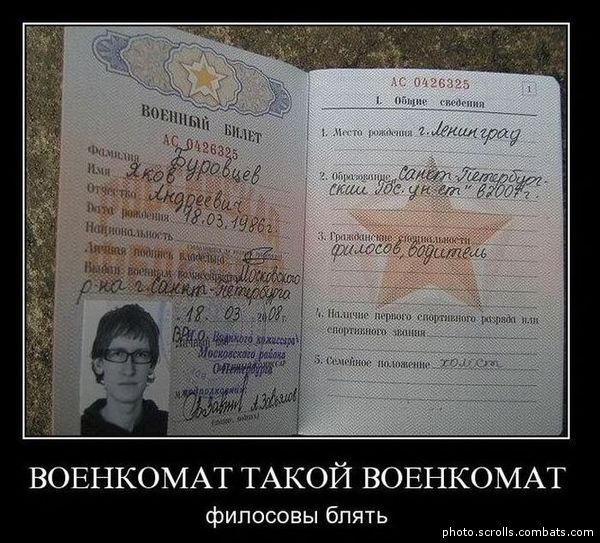 ВОЕННЫЙ БИЛЕТ
АС 0426325
Фамилия Буровцев
Имя Яков
Отчество Андреевич
Дата рождения 18.03.1986г.
Национальность
Личная подпись владельца
Выдан военным комиссариатом Московского
р-на г. Санкт-Петербурга
18. 03 2008г.
Военного комиссара
Московского района
С-Петербурга
подполковник
АС 0426325
1
I. Общие сведения
1. Место рождения г. Ленинград
2. Образование Санкт-Петербург-
ский Гос. ун-ет" в 2007г.
3. Гражданские специальности
филосов, водитель
4. Наличие первого спортивного разряда или
спортивного звания
5. Семейное положение холост
ВОЕНКОМАТ ТАКОЙ ВОЕНКОМАТ
филосовы блять
photo.scrolls.combats.com